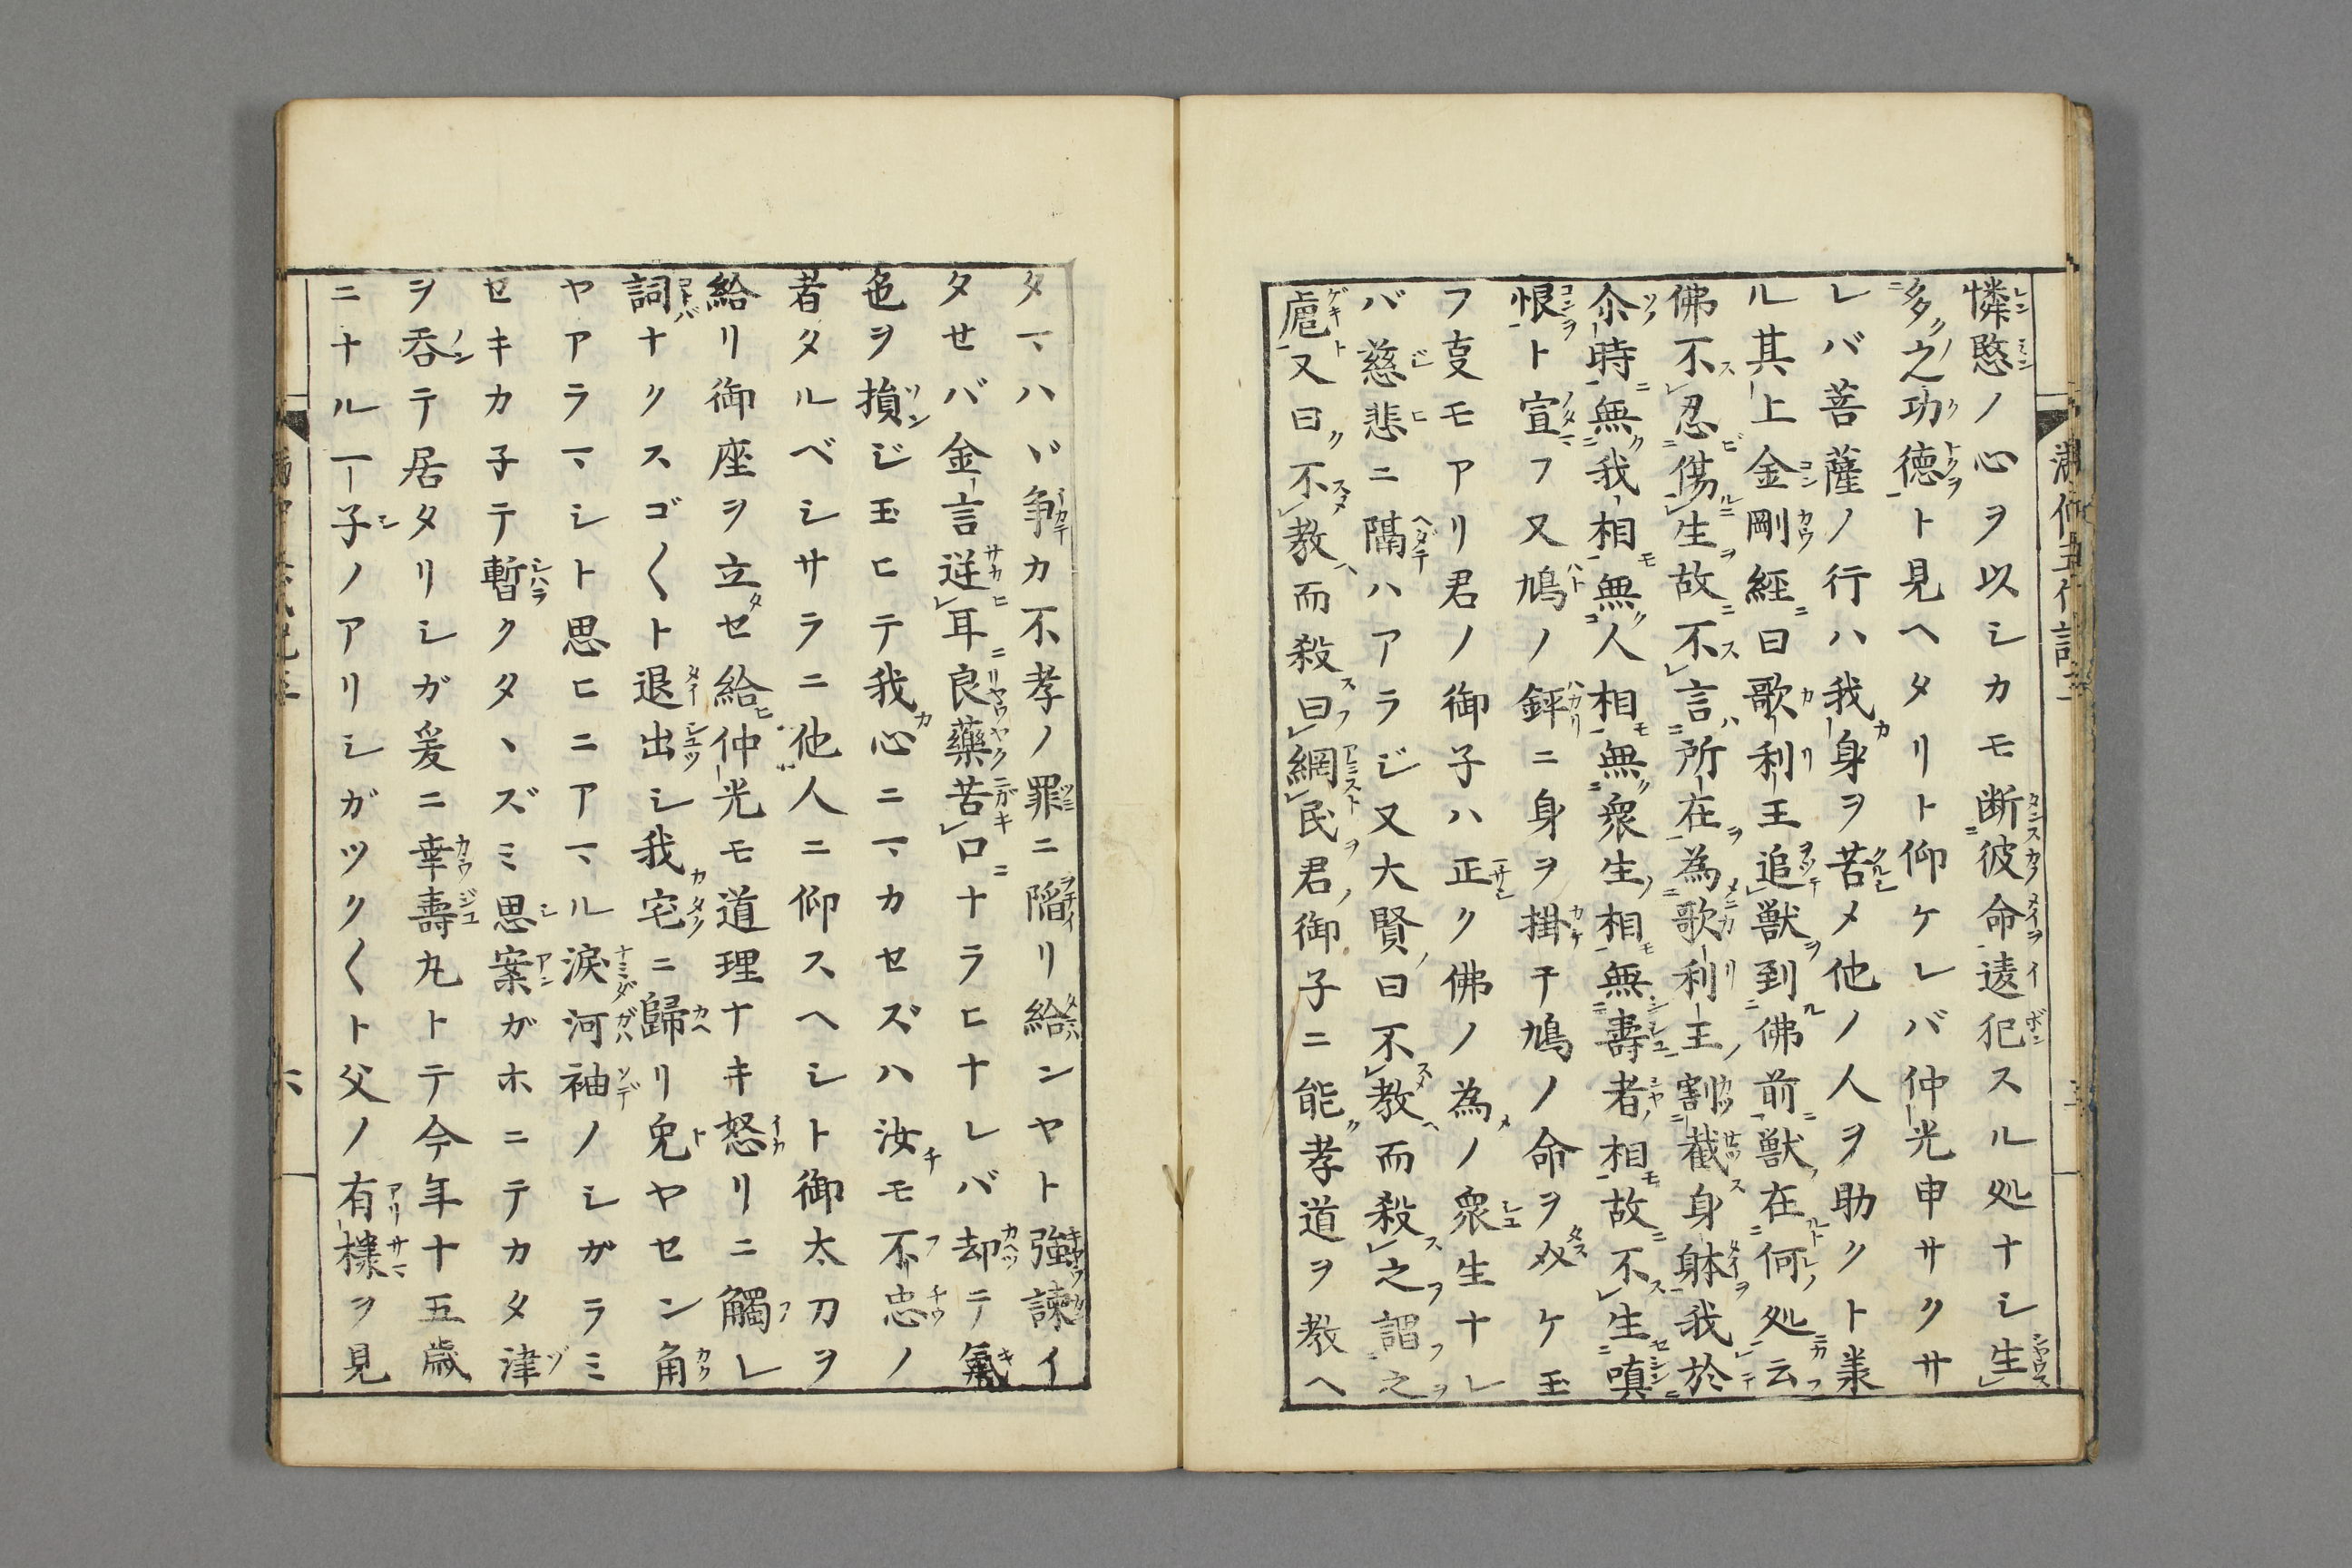 憐愍ノ心ヲ以シカモ断彼命遠犯スル処ナシ生
多之功徳ト見ヘタリト仰ケレバ仲光申サクサ
レバ菩薩ノ行ハ我身ヲ苦メ他ノ人ヲ助クト業
ル其上金剛經曰歌利王追獣到佛前獣在何処云
佛不忍傷生故不言所在為歌利王割截身躰我於
尒時無我相無人相無衆生相無壽者相故不生嗔
恨ト宣フ又鳩ノ鉡ニ身ヲ掛テ鳩ノ命ヲ㕛ケ玉
フ叓モアリ君ノ御子ハ正ク佛ノ為ノ衆生ナレ
バ慈悲ニ隔ハアラジ又大賢曰不教而殺之謂之
虐又曰不教而殺曰網民君御子ニ能孝道ヲ教ヘ
タマハヾ争カ不孝ノ罪ニ陥リ給ンヤト強諫イ
タせバ金言逆耳良藥苦口ナラヒナレバ却テ氣
色ヲ損ジ玉ヒテ我心ニマカセズハ汝モ不忠ノ
者タルベシサラニ他人ニ仰スヘシト御太刀ヲ
給リ御座ヲ立セ給仲光モ道理ナキ怒リニ觸レ
詞ナクスゴ〱ト退出シ我宅ニ歸リ兔ヤセン角
ヤアラマシト思ヒニアマル涙河袖ノシガラミ
セキカ子テ暫クタヽズミ思案ガホニテカタ津
ヲ呑テ居タリシガ爰ニ幸壽丸トテ今年十五歳
ニナル一子ノアリシガツク〱ト父ノ有樣ヲ見